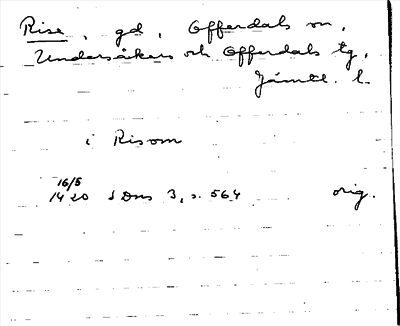 Rise, gd, Offerdals sn,
Undersåkers och Offerdals tg,
Jämtl. l.
i Risom
16/5
1420 SDns 3, s. 564 orig.